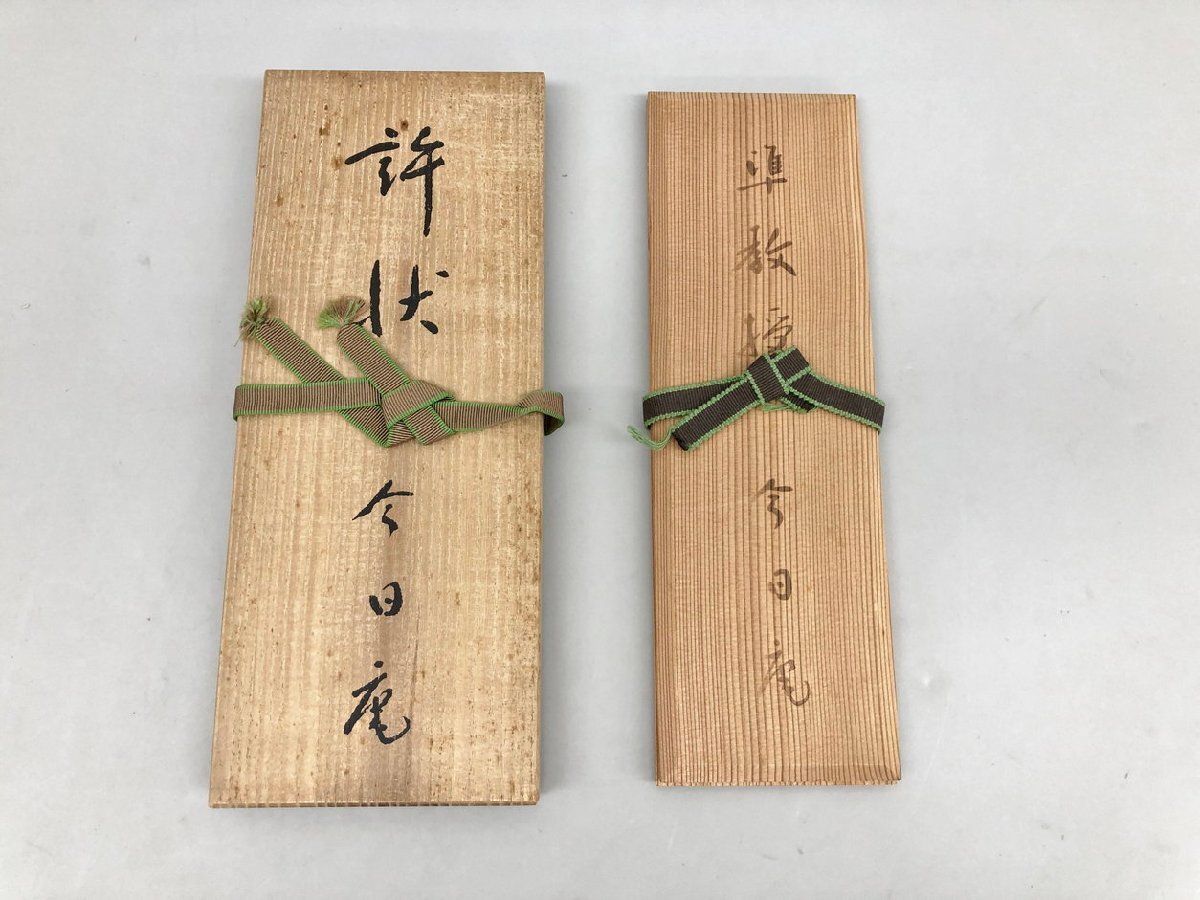 許状
今日庵
準教授
今日庵